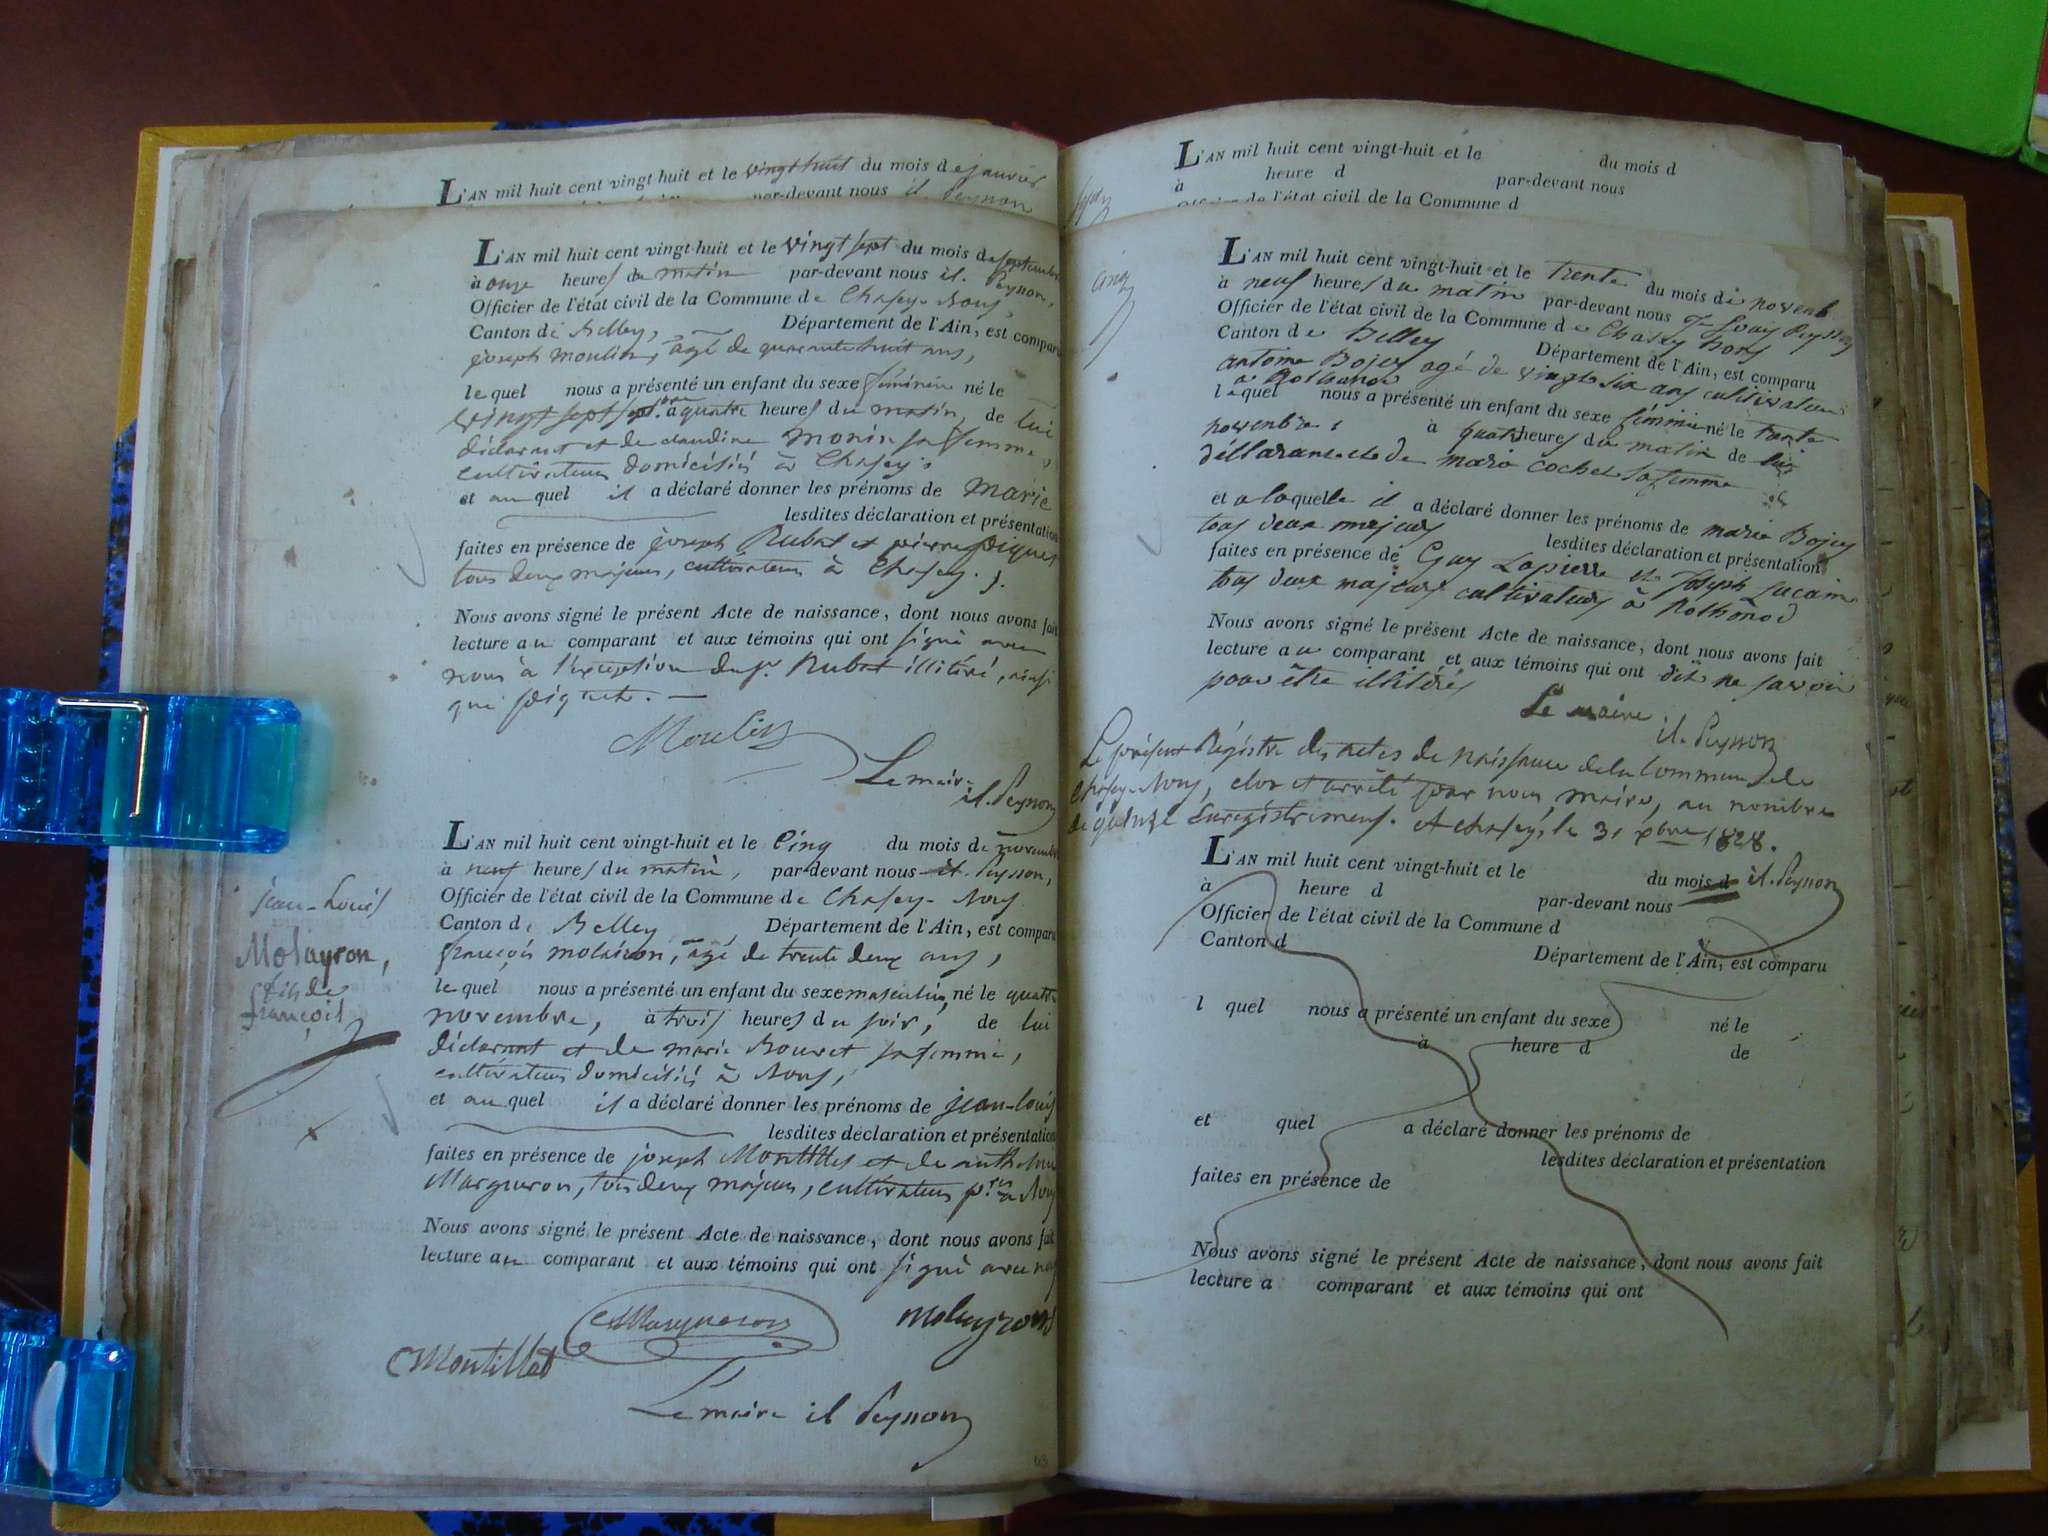 L'AN mil huit cent vingt huit et le vingt huit du mois de janvier
par-devant nous il. Peysson
L'AN mil huit cent vingt-huit et le vingt sept du mois de septembre
à onze heures du matin par-devant nous il. Peysson,
Officier de l'état civil de la Commune de Chasey-Bons,
Canton de Belley, Département de l'Ain, est comparu
joseph moulin, âgé de quarante huit ans,
le quel nous a présenté un enfant du sexe féminin né le
vingt sept sept.bre à quatre heures du matin, de lui
déclarant et de claudine monin sa femme,
cultivateurs domiciliés à Chasey;
et au quel il a déclaré donner les prénoms de marie
lesdites déclaration et présentation
faites en présence de joseph Rubat et pierre
tous deux majeurs, cultivateurs à Chasey.
Nous avons signé le présent Acte de naissance, dont nous avons fait
lecture au comparant et aux témoins qui ont signé avec
nous à l'exception du sr. Rubat illitéré, ainsi
que
Moulin
Le maire
il. Peysson
L'AN mil huit cent vingt-huit et le cinq du mois de novembre
à neuf heures du matin, par-devant nous il. Peysson,
Officier de l'état civil de la Commune de Chasey-Bons
Canton de Belley, Département de l'Ain, est comparu
françois molairon, âgé de trente deux ans,
le quel nous a présenté un enfant du sexe masculin, né le quatre
novembre, à trois heures du soir, de lui
déclarant et de marie Bouvet sa femme,
cultivateurs domiciliés à Bons,
et au quel il a déclaré donner les prénoms de jean-louis
lesdites déclaration et présentation
faites en présence de joseph Montillet et de anthelme
Margueron, tous deux majeurs, cultivateurs à Bons
Nous avons signé le présent Acte de naissance, dont nous avons fait
lecture au comparant et aux témoins qui ont signé avec nous
Margueron
molayron
Montillet
Le maire il Peysson
63
jean-Louis
Molayron,
fils de
françois
L'AN mil huit cent vingt-huit et le du mois d
à heure d par-devant nous
Officier de l'état civil de la Commune d
cinq
L'AN mil huit cent vingt-huit et le trente du mois de novemb
à neuf heures du matin par-devant nous Peysson
Officier de l'état civil de la Commune de Chasey bons
Canton de Belley Département de l'Ain, est comparu
antoine Bojey agé de vingt six ans cultivateur
à Rothonod
lequel nous a présenté un enfant du sexe féminin né le trente
novembre à quatre heures du matin de lui
déllarant et de marie cochet sa femme
et a laquelle il a déclaré donner les prénoms de marie Bojey
tous deux majeurs lesdites déclaration et présentation
faites en présence de Guy Lapierre et Joseph Lucain
tous deux majeurs cultivateurs à Rothonod
Nous avons signé le présent Acte de naissance, dont nous avons fait
lecture au comparant et aux témoins qui ont dit ne savoir
pour être illitérés
Le maire
il. Peysson
Le présent Régistre des actes de Naissance de la Commune de
Chasey-Bons, clos et arrêté par nous, maire, au nombre
de quinze Enregistrements. A Chasey, le 31 Xbre 1828.
L'AN mil huit cent vingt-huit et le du mois d il. Peysson
à heure d par-devant nous
Officier de l'état civil de la Commune d
Canton d Département de l'Ain, est comparu
l quel nous a présenté un enfant du sexe né le
à heure d de
et quel a déclaré donner les prénoms de
lesdites déclaration et présentation
faites en présence de
Nous avons signé le présent Acte de naissance, dont nous avons fait
lecture a comparant et aux témoins qui ont